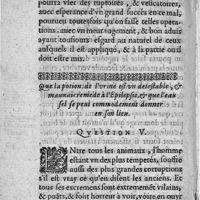 pourra vser des ruptoires, & vesicatoires,
auec esperance d'vn grand succés entre mal,
pourueu toutesfois qu'on fasse telles opera-
tions, auec vn meur iugement, & bon aduis
ayant tousiours esgard au naturel de ceux
ausquels il est appliqué, & à la partie où il
doit estre mis.
Que la potion de l'vrine est detestable, &
mauuais remede à l'Epilepsie, & que l'eau
sel se peut commodement donner
en son lieu.
QVESTION V.
ENtre tous les animaux, l'homme
estant vn des plus temperés, souffre
aussi des plus grandes corruptions
s'il est vray ce qu'en disent les anciens. Et
tous ses excremens sont extremement vilains,
& puāts, & font horreur à voir, voire en ouyr